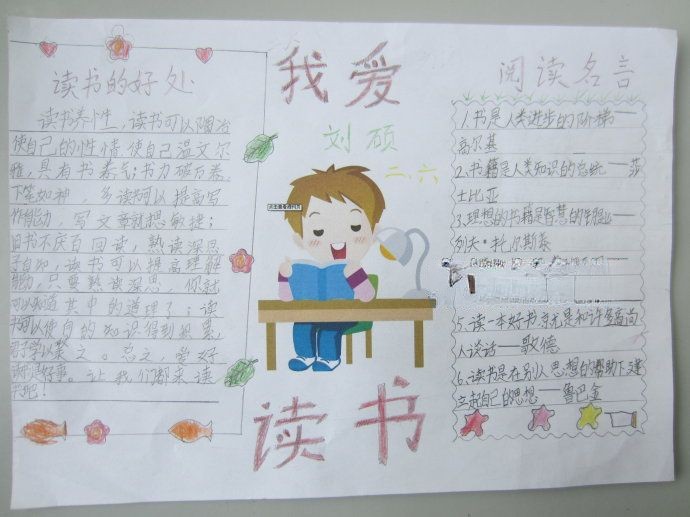 我爱
刘硕
二、六
读书
读书的好处
读书养性,读书可以陶冶
使自己的性情,使自己温文尔
雅,具有书卷气;书力破万卷,
下笔如神,多读可以提高写
作能力,写文章就想敏捷;
旧书不厌百回读,熟读深思
子自知,读书可以提高理解
能力,只要熟读深思,你就
可以知道其中的道理了;读
书可以使自的知识得到积累,
君子学以聚之。总之,爱好
读书是好事。让我们都来读
书吧!
阅读名言
1.书是人类进步的阶梯——
高尔基
2.书籍是人类知识的总统——莎
士比亚
3.理想的书籍是智慧的钥匙——
列夫·托尔斯泰
5.读一本好书,京尤是和许多高尚
人谈话——歌德
6.读书是在别人思想的帮助下,建
立起自己的思想——鲁巴金